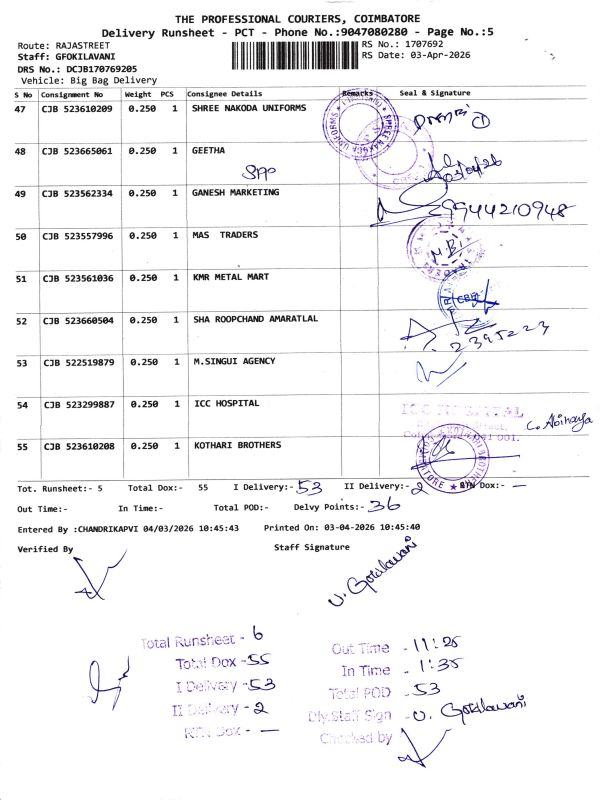 THE PROFESSIONAL COURIERS, COIMBATORE
Delivery Runsheet - PCT - Phone No.:9047080280 - Page No.:5
Route: RAJASTREET
RS No.: 1707692
Staff: GFOKILAVANI
RS Date: 03-Apr-2026
DRS No.: DCJB170769205
Vehicle: Big Bag Delivery
S No Consignment No Weight PCS Consignee Details Remarks Seal & Signature
47 CJB 523610209 0.250 1 SHREE NAKODA UNIFORMS
48 CJB 523665061 0.250 1 GEETHA
49 CJB 523562334 0.250 1 GANESH MARKETING 9944210948
50 CJB 523557996 0.250 1 MAS TRADERS
51 CJB 523561036 0.250 1 KMR METAL MART
52 CJB 523660504 0.250 1 SHA ROOPCHAND AMARATLAL
2395223
53 CJB 522519879 0.250 1 M.SINGUI AGENCY
54 CJB 523299887 0.250 1 ICC HOSPITAL ICC HOSPITAL
C. Abinaya
55 CJB 523610208 0.250 1 KOTHARI BROTHERS
Tot. Runsheet:- 5 Total Dox:- 55 I Delivery:- 53 II Delivery:- 2 RTN Dox:- —
Out Time:- In Time:- Total POD:- Delvy Points:- 36
Entered By :CHANDRIKAPVI 04/03/2026 10:45:43 Printed On: 03-04-2026 10:45:40
Verified By Staff Signature
U. Gokilavani
Total Runsheet - 6
Total Dox - 55
I Delivery - 53
II Delivery - 2
RTN Dox - —
Out Time - 11:25
In Time - 1:35
Total POD - 53
Dly.Staff Sign - U. Gokilavani
Checked by